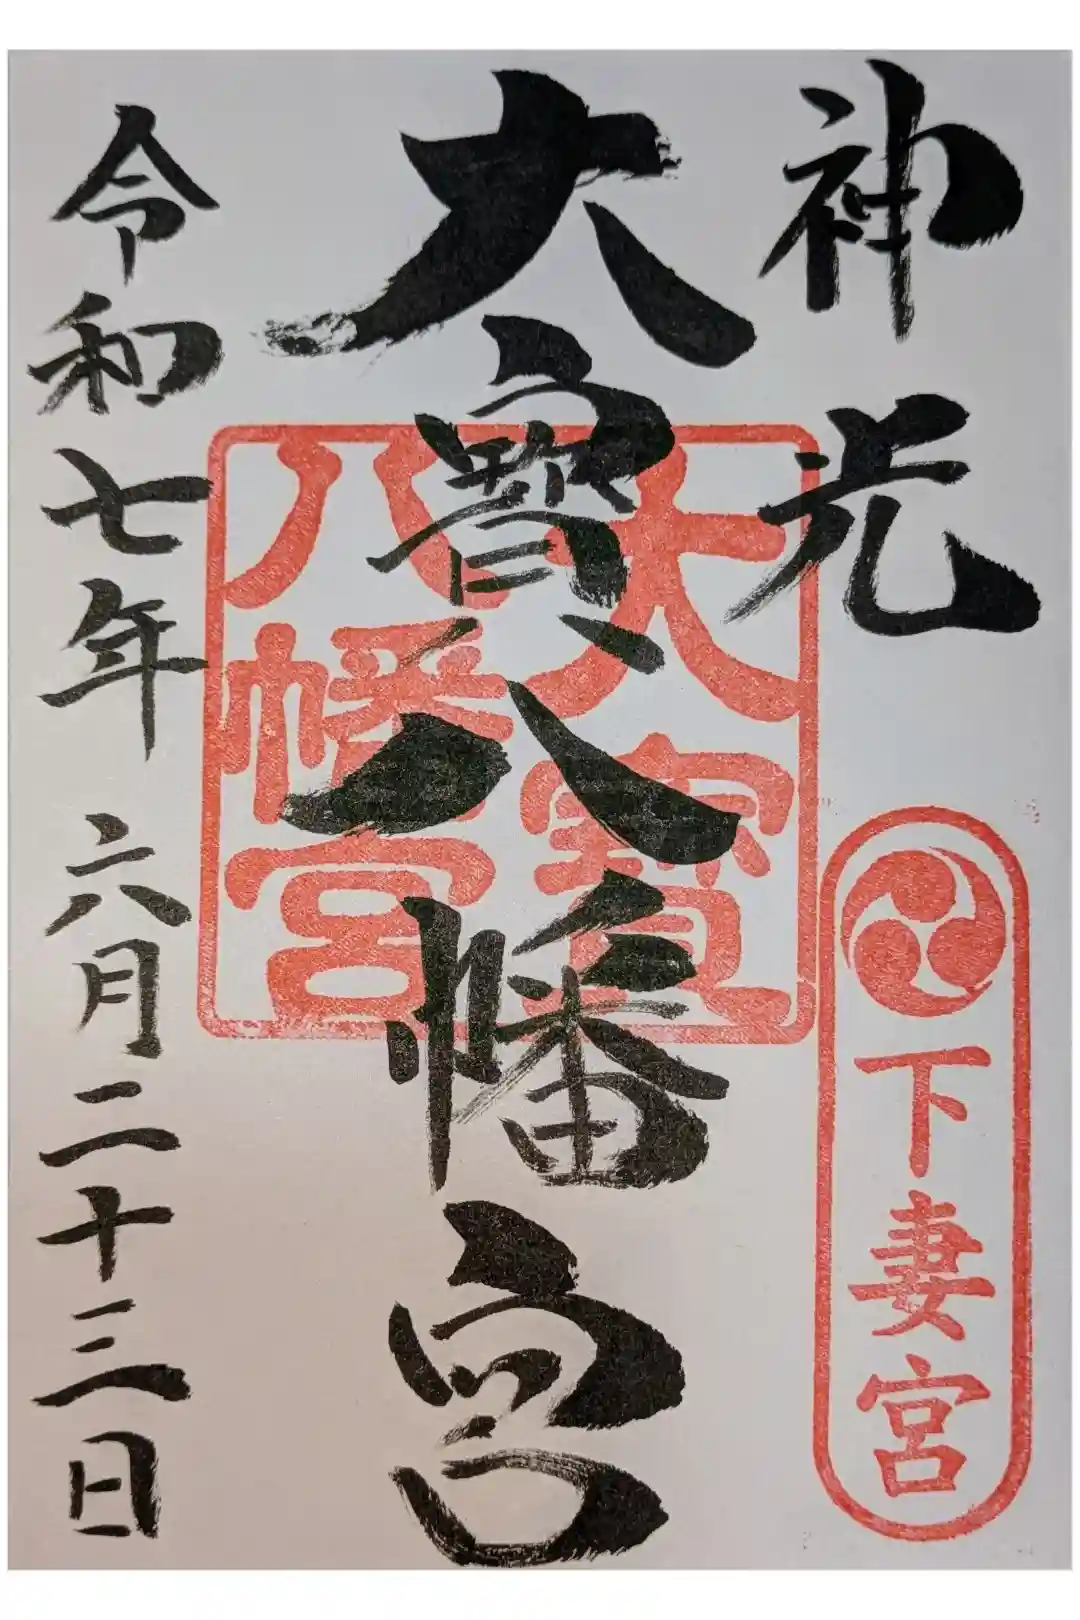 神光
下妻宮
大寶八幡宮
大寶
八幡宮
令和七年六月二十三日